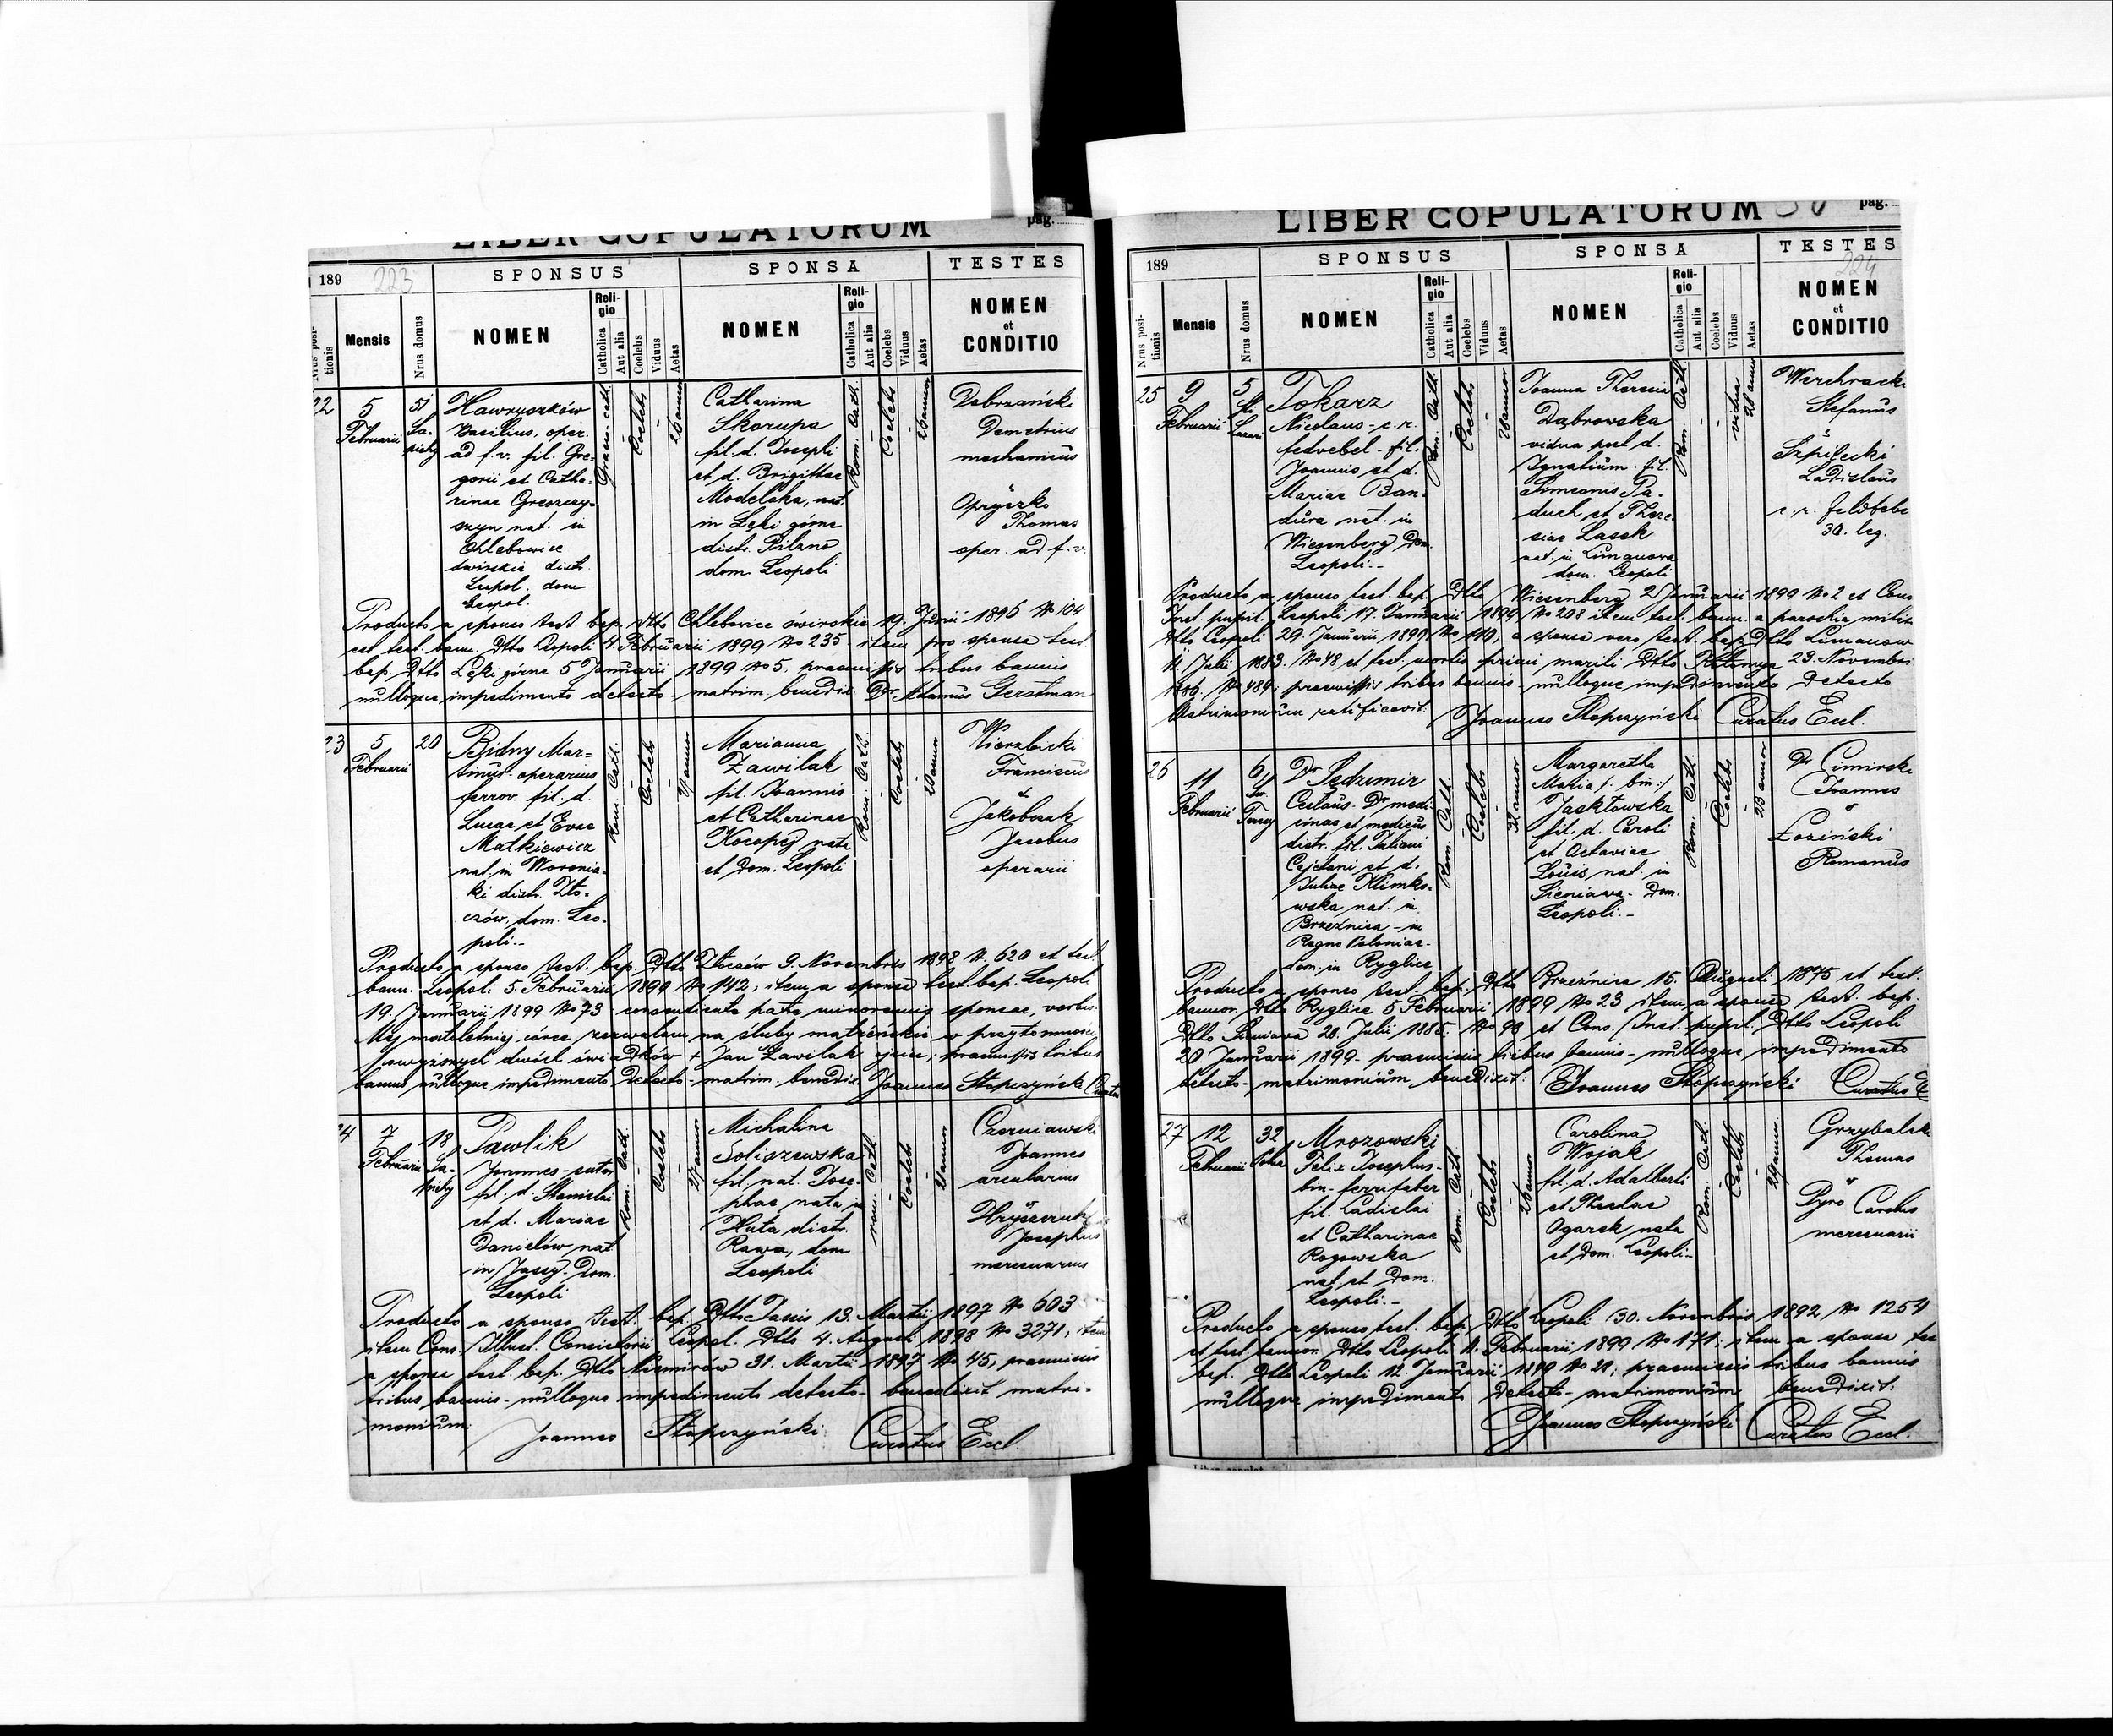 LIBER COPULATORUM
pag.
189 223
SPONSUS
SPONSA
TESTES
Nrus positionis
Mensis
Nrus domus
NOMEN
Religio
Catholica
Aut alia
Coelebs
Viduus
Aetas
NOMEN
Religio
Catholica
Aut alia
Coelebs
Viduus
Aetas
NOMEN
et
CONDITIO
22
5
Februarii
51
Sa-
piehy
Hawryszków
Basilius, oper.
ad f. v. fil. Gre-
gorii et Catha-
rinae Greszczy-
szyn nat. in
Chlebowice
świrskie distr.
Leopol. dom
Leopol.
Graeco-cath.
Coelebs
Catharina
Skorupa
fil. d. Josephi
et d. Brigittae
Modelska, nat.
in Łęki górne
distr. Pilzno
dom. Leopoli
Rom. Cath.
Coelebs
Dobrzański
Demetrius
mechanicus
Opryszko
Thomas
oper. ad f. v.
Producto a sponso test. bap. dtto Chlebowice świrskie 19. Junii 1896 No 104
et test. bann. dtto Leopoli 4. Februarii 1899 No 235 item pro sponsa test
bap. dtto Łęki górne 5 Januarii 1899 No 5, praemissis tribus bannis
nulloque impedimento detecto - matrim. benedix. Dr. Adamus Gerstman
23
5
Februarii
20
Bidny Mar-
tinus operarius
ferrov. fil. d.
Lucae et Evae
Matkiewicz
nat. in Woronia-
ki distr. Zło-
czów, dom. Leo-
poli.-
Rom. Cath.
Coelebs
Marianna
Zawilak
fil. Joannis
et Catharinae
Kocopéj nata
et dom. Leopoli
Rom. Cath.
Coelebs
Wierzbicki
Franciscus
+
Jakobczak
Jacobus
operarii
Producto a sponso test. bap. dtto Złoczów 9. Novembris 1898 N. 620 et test.
bann. Leopoli 5. Februarii 1899 No 142, item a sponsa test. bap. Leopoli
19. Januarii 1899 No 73 consentiente patre minorennis sponsae, verbis:
Mej małoletniej córce zezwalam na śluby małżeńskie w przytomności
powyższych dwóch świadków + Jan Zawilak ojciec; praemissis tribus
bannis nulloque impedimento detecto - matrim. benedix. Joannes Stopczyński
24
7
Februarii
18
Sa-
piehy
Pawlik
Joannes - sutor
fil. d. Stanislai
et d. Mariae
Danielów nat
in Jassy - Dom.
Leopoli
Rom. Cath.
Coelebs
Michalina
Soliszewska
fil. nat. Jose-
phae nata in
Huta distr.
Rawa, dom
Leopoli
rom. Cath
Coelebs
Czerniawski
Joannes
arcularius
Josephus
mercenarius
Producto a sponso test. bap. dtto Jassis 13. Martii 1897 No 603
item Cons. Illust. Consistorii Leopol. dtto 4. Augusti 1898 No 3271, item
a sponsa test. bap. dtto Niemirów 31. Martii 1897 No 45, praemissis
tribus bannis - nulloque impedimento detecto - benedixit matri-
monium
Joannes Stopczyński Curatus Eccl
LIBER COPULATORUM
pag.
189
SPONSUS
SPONSA
TESTES
224
Nrus positionis
Mensis
Nrus domus
NOMEN
Religio
Catholica
Aut alia
Coelebs
Viduus
Aetas
NOMEN
Religio
Catholica
Aut alia
Coelebs
Viduus
Aetas
NOMEN
et
CONDITIO
25
9
Februarii
5
Sti
Lazari
Tokarz
Nicolaus - c. r.
fedvebel - fil.
Joannis et d.
Mariae Ban-
dura nat. in
Wiesenberg Dom.
Leopoli.-
Rom. Cath.
Coelebs
Joanna Theresia
Dąbrowska
vidua post d.
Ignatium. fil.
Simeonis Pa-
duch et There-
siae Lasek
nat. in Limanowa
dom. Leopoli
Rom. Cath.
vidua
Werchracki
Stefanus
Szpilecki
Ladislaus
c. r. feldbebe
30. leg.
Producto a sponso test. bap. dtto Wiesenberg 2 Januarii 1899 No 2 et Cons
Inst. pupil. Leopoli 17. Januarii 1899 No 208 item test. bann. a parochia milit
dtto Leopoli 29. Januarii 1899 No 440, a sponsa vero test. bap. dtto Limanow
11. Julii 1883. No 48 et test. mortis priori mariti dtto Kołomyja 23. Novembri
1886. No 489; praemissis tribus bannis - nulloque impedimento detecto
Matrimonium ratificavit: Joannes Stopczyński Curatus Eccl.
26
11
Februarii
6
Dr Sędzimir
Ceslaus - Dr medi-
cinae et medicus
distr. fil. Juliani
Cajetani et d.
Juliae Klimko-
wska nat. in
Brzeźnica - in
Regno Poloniae -
dom. in Ryglice
Rom. Cath.
Coelebs
32 annor
Margaretha
Maria /: bin :/
Jaskłowska
fil. d. Caroli
et Octaviae
Louis nat. in
Sieniawa - Dom.
Leopoli.-
Rom. Cath.
Coelebs
23 annor
Dr Cimirski
Joannes
Łoziński
Romanus
Producto a sponso test. bap. dtto Brzeźnica 15. Augusti 1875 et test.
bannor. dtto Ryglice 5 Februarii 1899 No 23 item a sponsa test. bap.
dtto Sieniawa 20. Julii 1885. No 98 et Cons. Inst. pupil. dtto Leopoli
20. Januarii 1899 - praemissis tribus bannis - nulloque impedimento
detecto - matrimonium benedixit: Joannes Stopczyński Curatus E
27
12
Februarii
32
Mrozowski
Felix Josephus -
bin - ferrifaber
fil. Ladislai
et Catharinae
Rogowska
nat. et Dom.
Leopoli.-
Rom. Cath
Coelebs
Carolina
Wojak
fil. d. Adalberti
et Theclae
Ogarek nata
et dom. Leopoli-
Rom. Cath.
Coelebs
Thomas
Pyro Carolus
mercenarii
Producto a sponso test. bap. dtto Leopoli 30. Novembris 1892 No 1254
et test. bannor. dtto Leopoli 11. Februarii 1899 No 171, item a sponsa tes
bap. dtto Leopoli 12. Januarii 1899 No 21; praemissis tribus bannis
nulloque impedimento detecto - matrimonium benedixit:
Joannes Stopczyński Curatus Eccl.